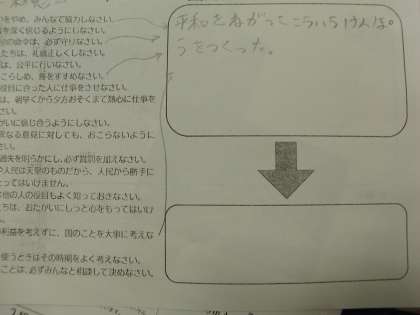 をやめ、みんなで協力しなさい。
を深く信じるようにしなさい。
の命令は、必ず守りなさい。
たちは、礼儀正しくしなさい。
は、公平に行いなさい。
こらしめ、善をすすめなさい。
役目に合った人に仕事をさせなさい。
は、朝早くから夕方おそくまで熱心に仕事を
さい。
がいに信じ合うようにしなさい。
異なる意見に対しても、おこらないように
さい。
過失を明らかにし、必ず賞罰を加えなさい。
や人民は天皇のものだから、人民から勝手に
とってはいけません。
は他の人の役目もよく知っておきなさい。
ちは、おたがいにしっと心をもってはいけ
ん。
利益を考えずに、国のことを大事に考えな
い。
使うときはその時期をよく考えなさい。
ことは、必ずみんなと相談して決めなさい。
平和をねがって
けんぽ
うをつくった。